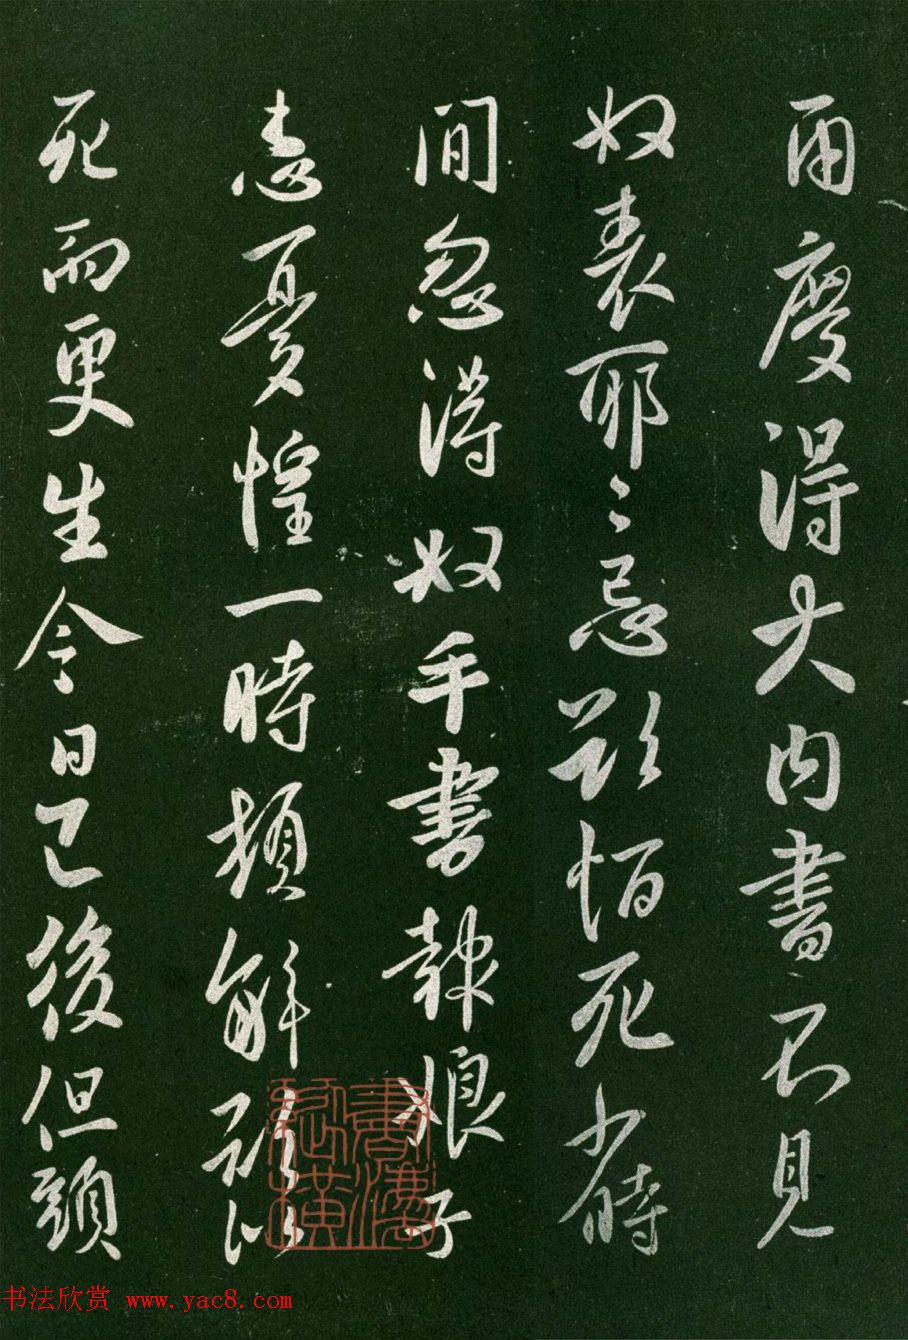 兩度得大內書不見
奴表耶〻忌欲恆死少時
間忽得奴手書報娘子
患憂惶一時頓解欲似
死而更生今日已後但頭
书法欣赏 www.yac8.com